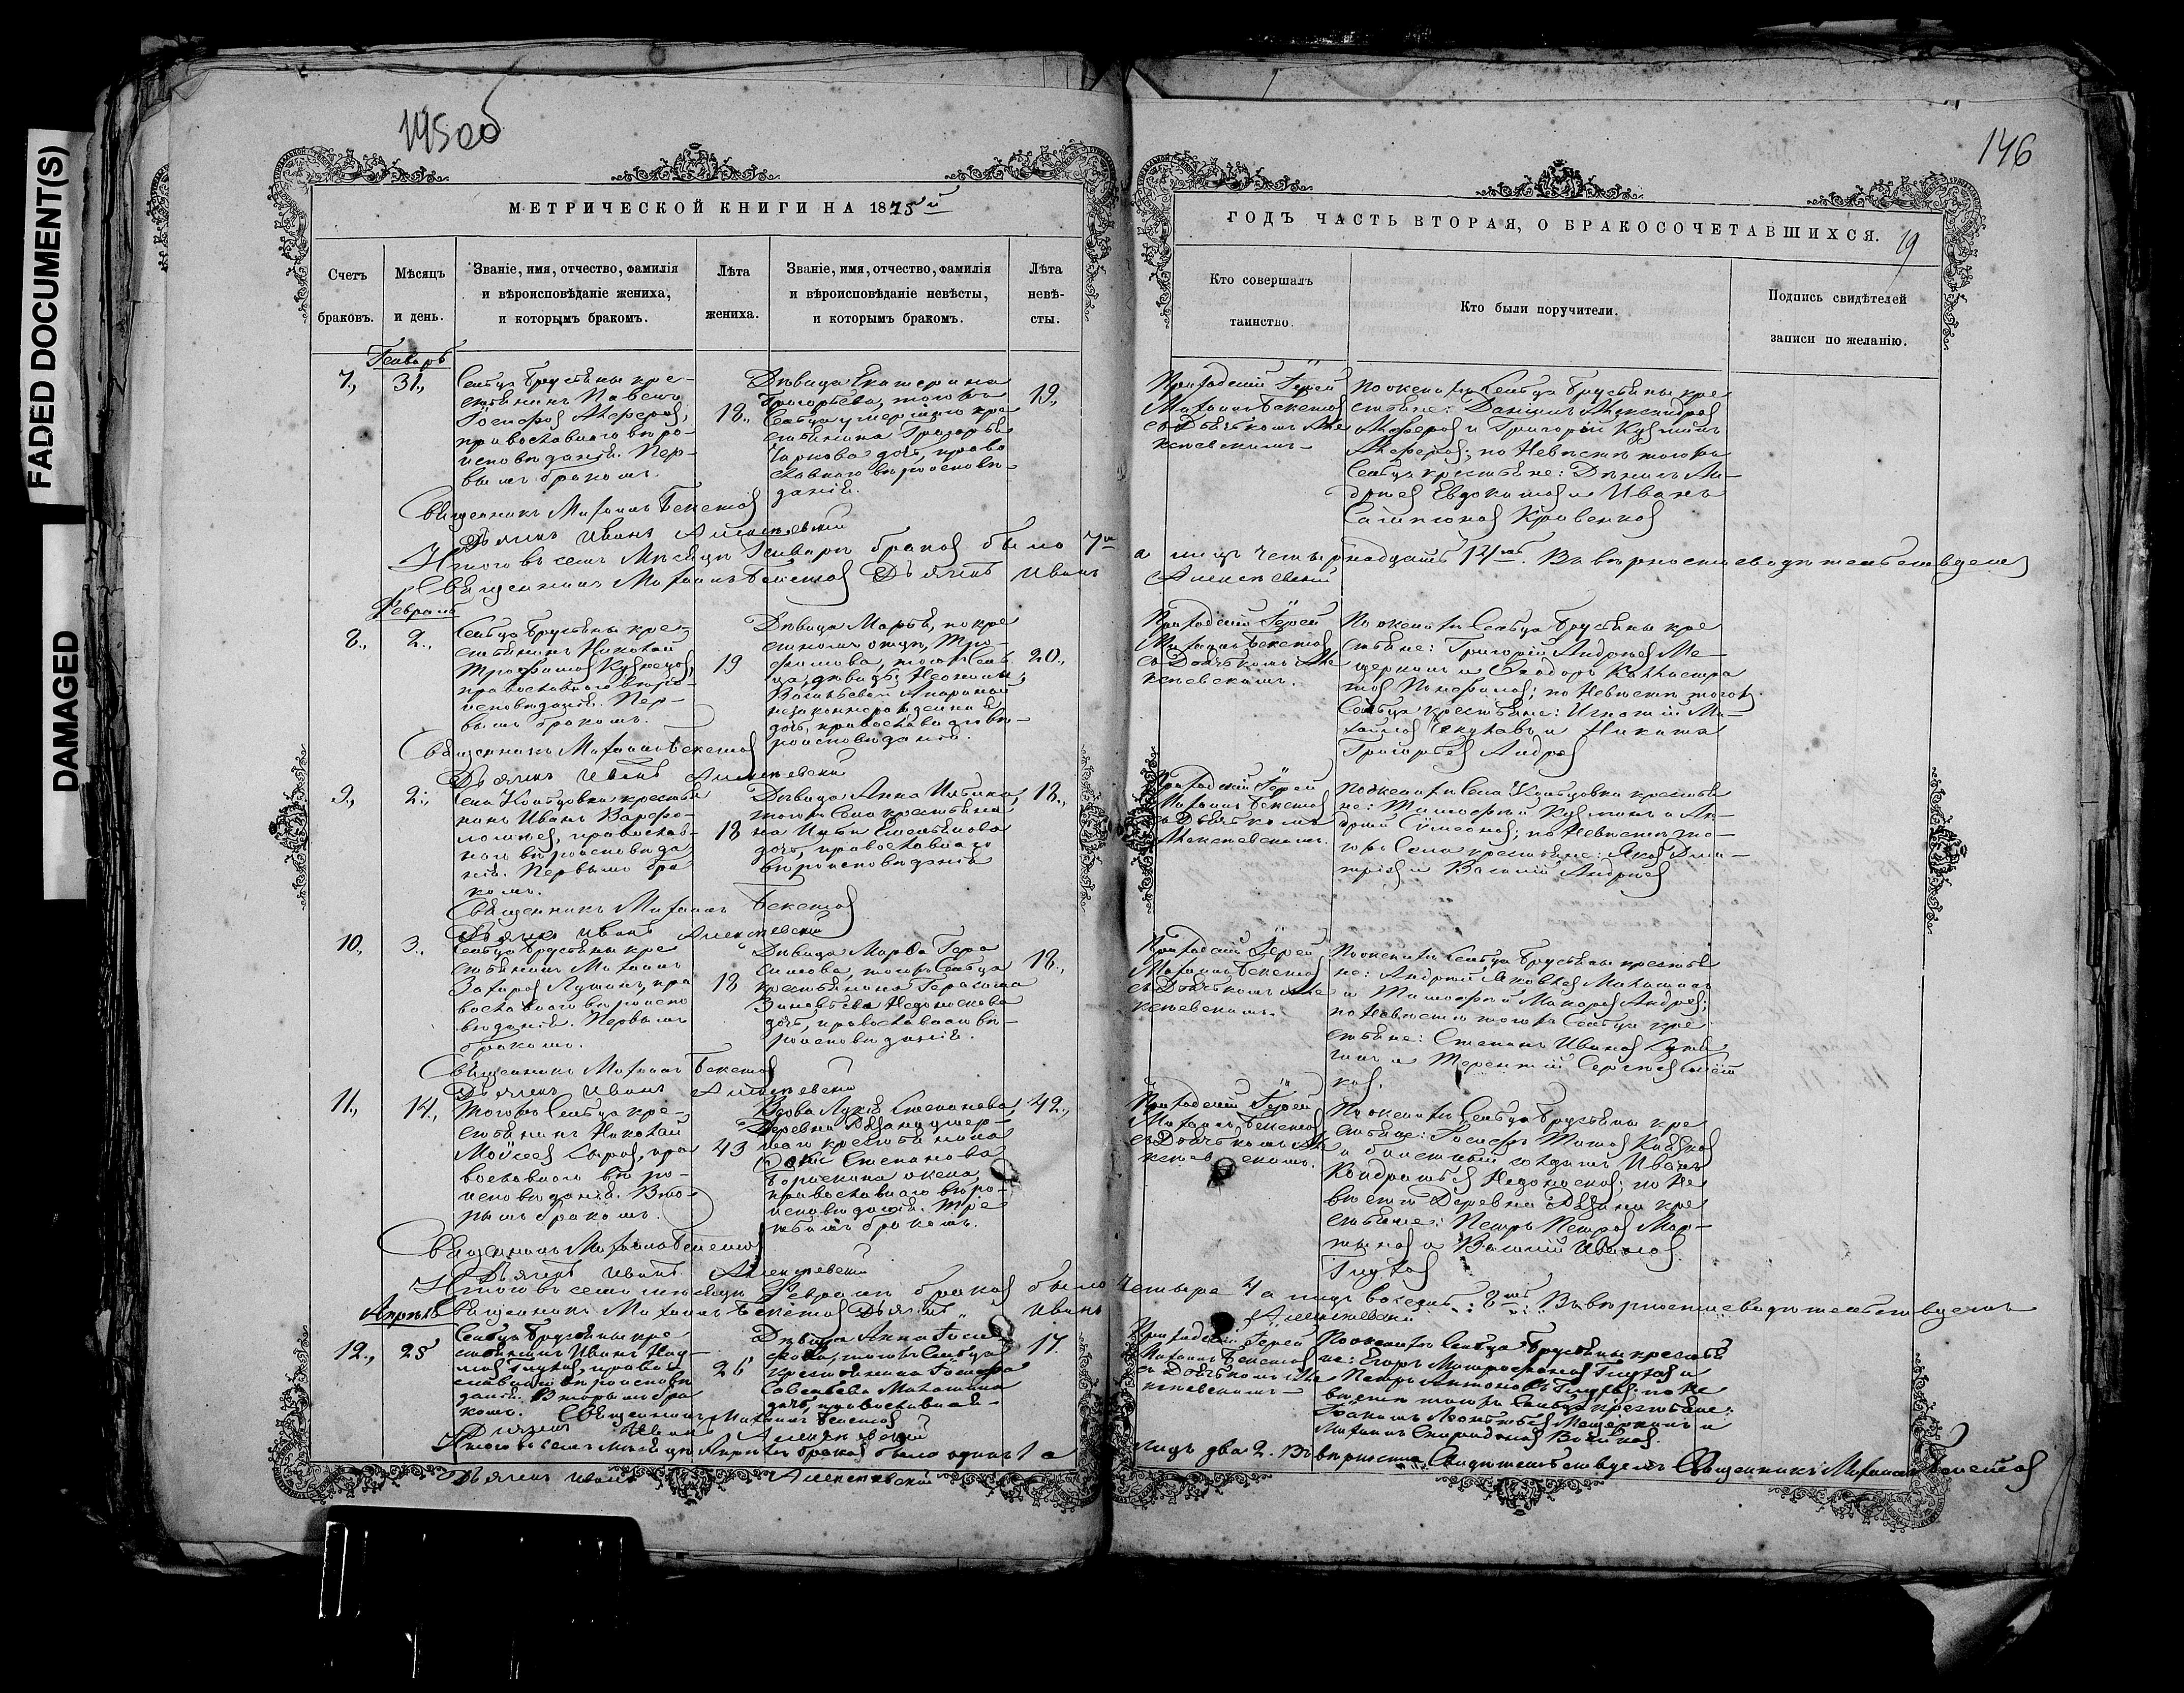 FADED DOCUMENT(S)
DAMAGED
145об
146
МЕТРИЧЕСКОЙ КНИГИ НА 1875й
ГОДЪ ЧАСТЬ ВТОРАЯ, О БРАКОСОЧЕТАВШИХСЯ.
19
Счетъ
браковъ.
Мѣсяцъ
и день.
Званіе, имя, отчество, фамилія
и вѣроисповѣданіе жениха,
и которымъ бракомъ.
Лѣта
жениха.
Званіе, имя, отчество, фамилія
и вѣроисповѣданіе невѣсты,
и которымъ бракомъ.
Лѣта
невѣ-
сты.
Кто совершалъ
таинство.
Кто были поручители.
Подпись свидѣтелей
записи по желанію.
Генварь
7., 31.,
Сельца Брусяны кре-
стьянинъ Павелъ
Іосифовъ
православнаго вѣро-
исповѣданія. Пер-
вымъ бракомъ.
18.,
Дѣвица Екатерина
Григорьева, того въ
Сельца умершаго кре
стьянина Григорья
дочь, право
славнаго вѣроисповѣ-
данія.
19.,
Приходскій Іерей
Михаилъ Бекетовъ
съ Дьячкомъ Але
ксѣевскимъ
По женихѣ Сельца Брусяны кре
стьяне: Даніилъ Александровъ
и Григорій Кузминъ
по Невѣстѣ тогожъ
Сельца крестьяне:
Евдокимовъ и Иванъ
Священникъ Михаилъ Бекетовъ
Дьячекъ Иванъ Алексѣевскій
Итого въ семъ мѣсяцѣ Генварѣ браковъ было 7м
а лицъ четырнадцать 14ть. Въ вѣрности свидѣтельствуемъ
Священникъ Михаилъ Бекетовъ Дьячекъ Иванъ
Алексѣевскій
Февраль
8., 2.,
Сельца Брусяны кре-
стьянинъ Николай
Трофимовъ Кузнецовъ,
православнаго вѣро-
исповѣданія. Пер-
вымъ бракомъ.
19
Дѣвица Марья, по кре
стномъ отцѣ,
тогожъ Сель
ца, дѣвицы
Васильевой
незаконнорожденная
дочь, православнаго вѣ-
роисповѣданія.
20.,
Приходскій Іерей
Михаилъ Бекетовъ
съ Дьячкомъ Але
ксѣевскимъ.
По женихѣ Сельца Брусяны кре
стьяне: Григорій Андреевъ Ме-
щеряковъ и Ѳеодоръ Каллистра
товъ Панфиловъ; по Невѣстѣ тогожъ
Сельца крестьяне: Игнатій Ми-
хайловъ и Никита
Григорьевъ
Священникъ Михаилъ Бекетовъ
Дьячекъ Иванъ Алексѣевскій
9., 2.,
Села Кольцовки крестья
нинъ Иванъ Варфо-
ломѣевъ, православ-
наго вѣроисповѣда
нія. Первымъ бра
комъ.
18
Дѣвица Анна Ильина,
тогожъ Села крестьяни
на Ильи Емельянова
дочь, православнаго
вѣроисповѣданія
18.,
Приходскій Іерей
Михаилъ Бекетовъ
съ Дьячкомъ
Алексѣевскимъ.
По женихѣ Села Кольцовки крестья
не: Тимофей Кузминъ и Ан-
дрей Симеоновъ; по Невѣстѣ то-
гожъ Села крестьяне: Яковъ Дми-
тріевъ и Василій Андреевъ
Священникъ Михаилъ Бекетовъ
Дьячекъ Иванъ Алексѣевскій
10., 3.,
Сельца Брусяны кре
стьянинъ Михаилъ
Захаровъ пра
вославнаго вѣроиспо
вѣданія. Первымъ
бракомъ.
18
Дѣвица Марѳа Гера
симова, тогожъ Сельца
крестьянина Герасима
Зиновьева Недоноскова
дочь, православнаго вѣ-
роисповѣданія.
18.,
Приходскій Іерей
Михаилъ Бекетовъ
съ Дьячкомъ Але
ксѣевскимъ.
По женихѣ Сельца Брусяны крестья
не: Андрей Яковлевъ
и Тимофей Макаровъ
по Невѣстѣ тогожъ Сельца кре
стьяне: Степанъ Ивановъ
и Терентій Сергѣевъ
Священникъ Михаилъ Бекетовъ
Дьячекъ Иванъ Алексѣевскій
11., 14.,
Тогожъ Сельца кре-
стьянинъ Николай
Моисеевъ пра
вославнаго вѣро-
исповѣданія. Вто-
рымъ бракомъ.
43
Вдова Степанова,
Деревни умер-
шаго крестьянина
Степанова
жена
православнаго вѣро-
исповѣданія. Тре
тьимъ бракомъ.
42.,
Приходскій Іерей
Михаилъ Бекетовъ
съ Дьячкомъ Але
ксѣевскимъ.
По женихѣ Сельца Брусяны кре
стьяне: Іосифъ Титовъ
и солдатъ Иванъ
Кондратьевъ Недоносковъ; по Не
вѣстѣ Деревни кре
стьяне: Петръ Петровъ Мар-
тыновъ и Василій Ивановъ
Глуховъ
Священникъ Михаилъ Бекетовъ
Дьячекъ Иванъ Алексѣевскій
Итого въ семъ мѣсяцѣ Февралѣ браковъ было
четыре 4 а лицъ восемь 8мь. Въ вѣрности свидѣтельствуемъ
Священникъ Михаилъ Бекетовъ Дьячекъ Иванъ
Алексѣевскій
Апрѣль
12., 25
Сельца Брусяны кре
стьянинъ Иванъ Нау-
мовъ Глуховъ, право-
славнаго вѣроисповѣ
данія. Вторымъ бра
комъ.
26
Дѣвица Анна Іоси-
фова, тогожъ Сельца
крестьянина Іосифа
Савельева
дочь, православнаго
17.
Приходскій Іерей
Михаилъ Бекетовъ
съ Дьячкомъ Але
ксѣевскимъ
По женихѣ Сельца Брусяны крестья
не: Егоръ Митрофановъ Глуховъ и
Петръ Антоновъ Глуховъ; по Не
вѣстѣ тогожъ Сельца крестьяне:
Леонтьевъ Мещеряковъ и
Михаилъ Спиридоновъ
Священникъ Михаилъ Бекетовъ
Дьячекъ Иванъ Алексѣевскій
Итого въ семъ мѣсяцѣ Апрѣлѣ браковъ было одинъ 1 а
лицъ два 2. Въ вѣрности Свидѣтельствуемъ Священникъ Михаилъ Бекетовъ
Дьячекъ Иванъ Алексѣевскій